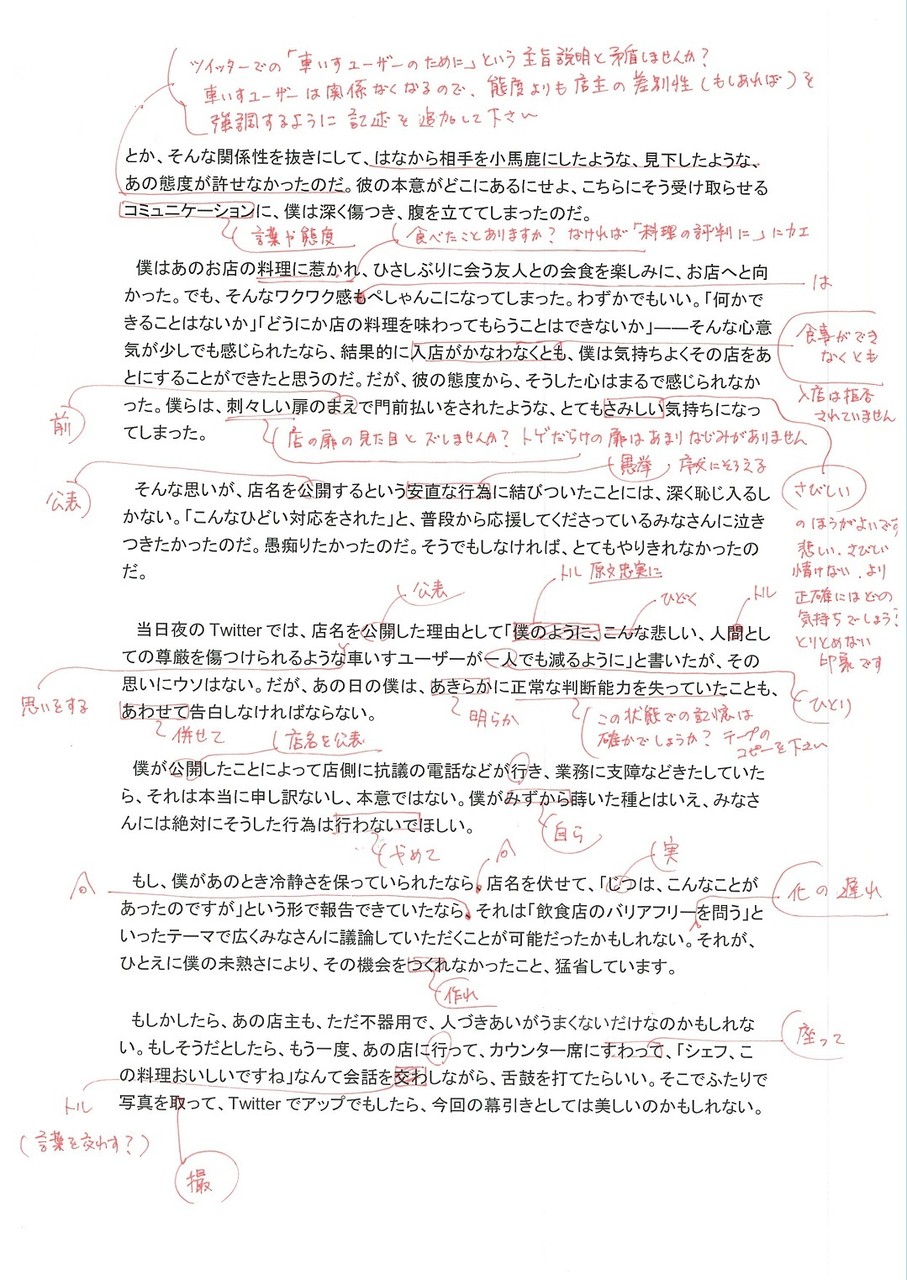 ツイッターでの「車いすユーザーのために」という主旨説明と矛盾しませんか?
車いすユーザーは関係なくなるので、態度よりも店主の差別性(もしあれば)を
強調するように記述を追加して下さい
とか、そんな関係性を抜きにして、はなから相手を小馬鹿にしたような、見下したような、
あの態度が許せなかったのだ。彼の本意がどこにあるにせよ、こちらにそう受け取らせる
コミュニケーションに、僕は深く傷つき、腹を立ててしまったのだ。
言葉や態度
食べたことありますか? なければ「料理の評判に」にカエ
僕はあのお店の料理に惹かれ、ひさしぶりに会う友人との会食を楽しみに、お店へと向
かった。でも、そんなワクワク感もぺしゃんこになってしまった。わずかでもいい。「何かで
は
きることはないか」「どうにか店の料理を味わってもらうことはできないか」――そんな心意
気が少しでも感じられたなら、結果的に入店がかなわなくとも、僕は気持ちよくその店をあ
食事ができ
なくとも
とにすることができたと思うのだ。だが、彼の態度から、そうした心はまるで感じられなか
入店は拒否
されていません
った。僕らは、刺々しい扉のまえで門前払いをされたような、とてもさみしい気持ちになっ
前
てしまった。
店の扉の見た目とズレませんか? トゲだらけの扉はあまりなじみがありません
愚挙
公表
そんな思いが、店名を公開するという安直な行為に結びついたことには、深く恥じ入るし
かない。「こんなひどい対応をされた」と、普段から応援してくださっているみなさんに泣き
つきたかったのだ。愚痴りたかったのだ。そうでもしなければ、とてもやりきれなかったの
だ。
さびしい
のほうがよいです
悲しい、さびしい
情けない、より
正確にはどの
気持ちでしょう?
とりとめない
印象です
公表
トル 原文忠実に
ひどく
トル
当日夜の Twitter では、店名を公開した理由として「僕のように、こんな悲しい、人間とし
ての尊厳を傷つけられるような車いすユーザーが一人でも減るように」と書いたが、その
思いをする
ひとり
思いにウソはない。だが、あの日の僕は、あきらかに正常な判断能力を失っていたことも、
あわせて告白しなければならない。
明らか
併せて
この状態での記憶は
確かでしょうか? テープの
コピーを下さい
店名を公表
僕が公開したことによって店側に抗議の電話などが行き、業務に支障などきたしていた
ら、それは本当に申し訳ないし、本意ではない。僕がみずから蒔いた種とはいえ、みなさ
んには絶対にそうした行為は行わないでほしい。
自ら
やめて
実
もし、僕があのとき冷静さを保っていられたなら、店名を伏せて、「じつは、こんなことが
あったのですが」という形で報告できていたなら、それは「飲食店のバリアフリーを問う」と
化の遅れ
いったテーマで広くみなさんに議論していただくことが可能だったかもしれない。それが、
ひとえに僕の未熟さにより、その機会をつくれなかったこと、猛省しています。
作れ
もしかしたら、あの店主も、ただ不器用で、人づきあいがうまくないだけなのかもしれな
い。もしそうだとしたら、もう一度、あの店に行って、カウンター席にすわって、「シェフ、こ
座って
の料理おいしいですね」なんて会話を交わしながら、舌鼓を打てたらいい。そこでふたりで
写真を取って、Twitter でアップでもしたら、今回の幕引きとしては美しいのかもしれない。
トル
(言葉を交わす?)
撮